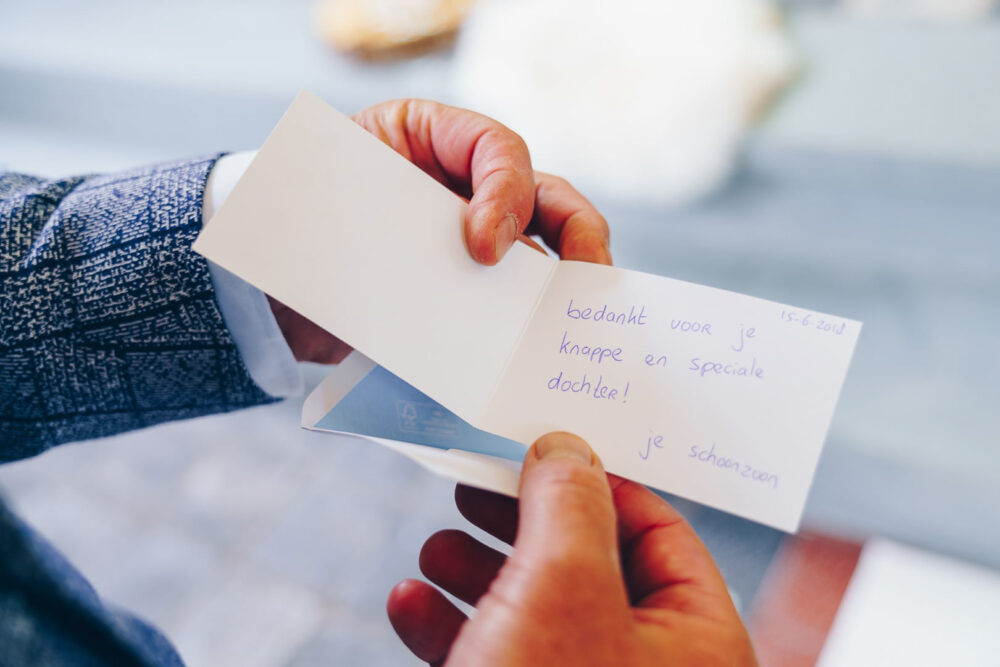 15-6-2018
bedankt voor je
knappe en speciale
dochter!
je schoonzoon